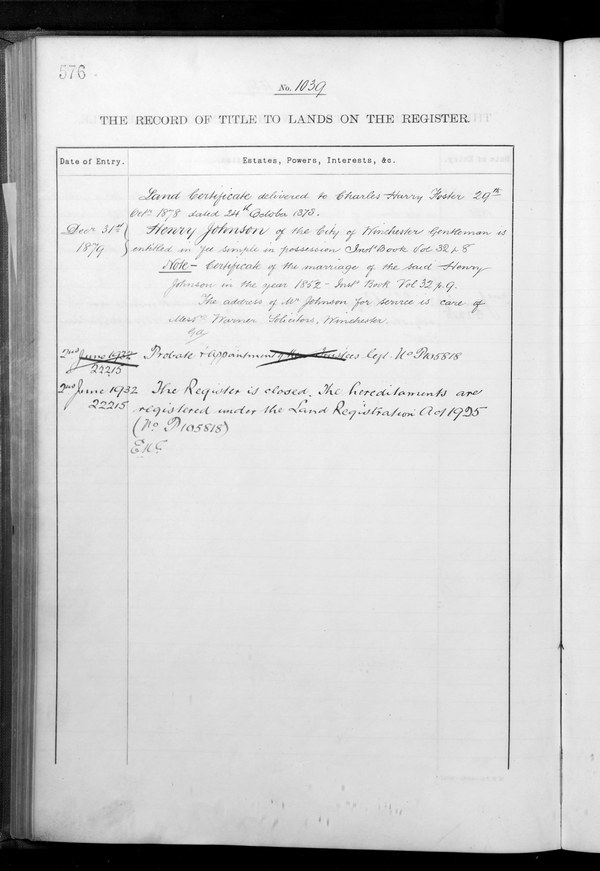 576
No. 1039
THE RECORD OF TITLE TO LANDS ON THE REGISTER.
Date of Entry.
Estates, Powers, Interests, &c.
Land Certificate delivered to Charles Harry Foster 29th
Octr 1878 dated 24th October 1878.
Decr 31st
1879
Henry Johnson of the City of Winchester Gentleman is
entitled in fee simple in possession Inst Book Vol 32 p 8
Note - Certificate of the marriage of the said Henry
Johnson in the year 1852 - Inst Book Vol 32 p. 9.
The address of Mr Johnson for service is care of
Messrs Warner Solicitors, Winchester
2nd June 1932
22215
Probate & appointment of New Trustees Regd. No P105818
2nd June 1932
22215
The Register is closed. The hereditaments are
registered under the Land Registration Act 1925
(No P105818)